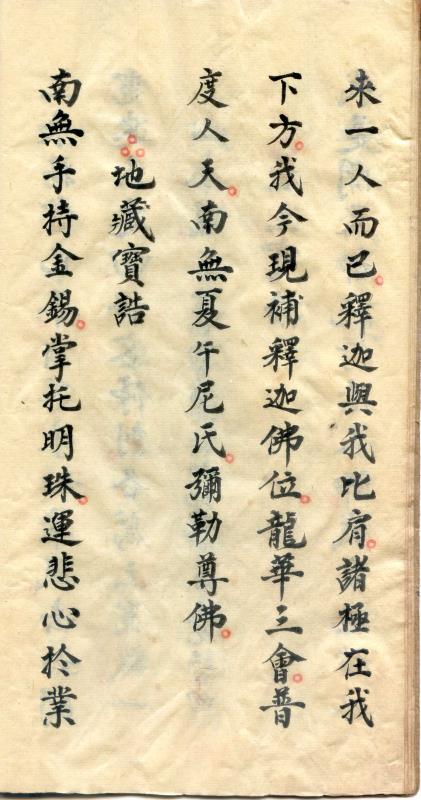 來一人而已。釋迦與我比肩。諸極在我
下方。我今現補釋迦佛位。龍華三會。普
度人天。南無夏午尼氏。彌勒尊佛。
地藏寶誥
南無手持金錫。掌托明珠。運悲心於業